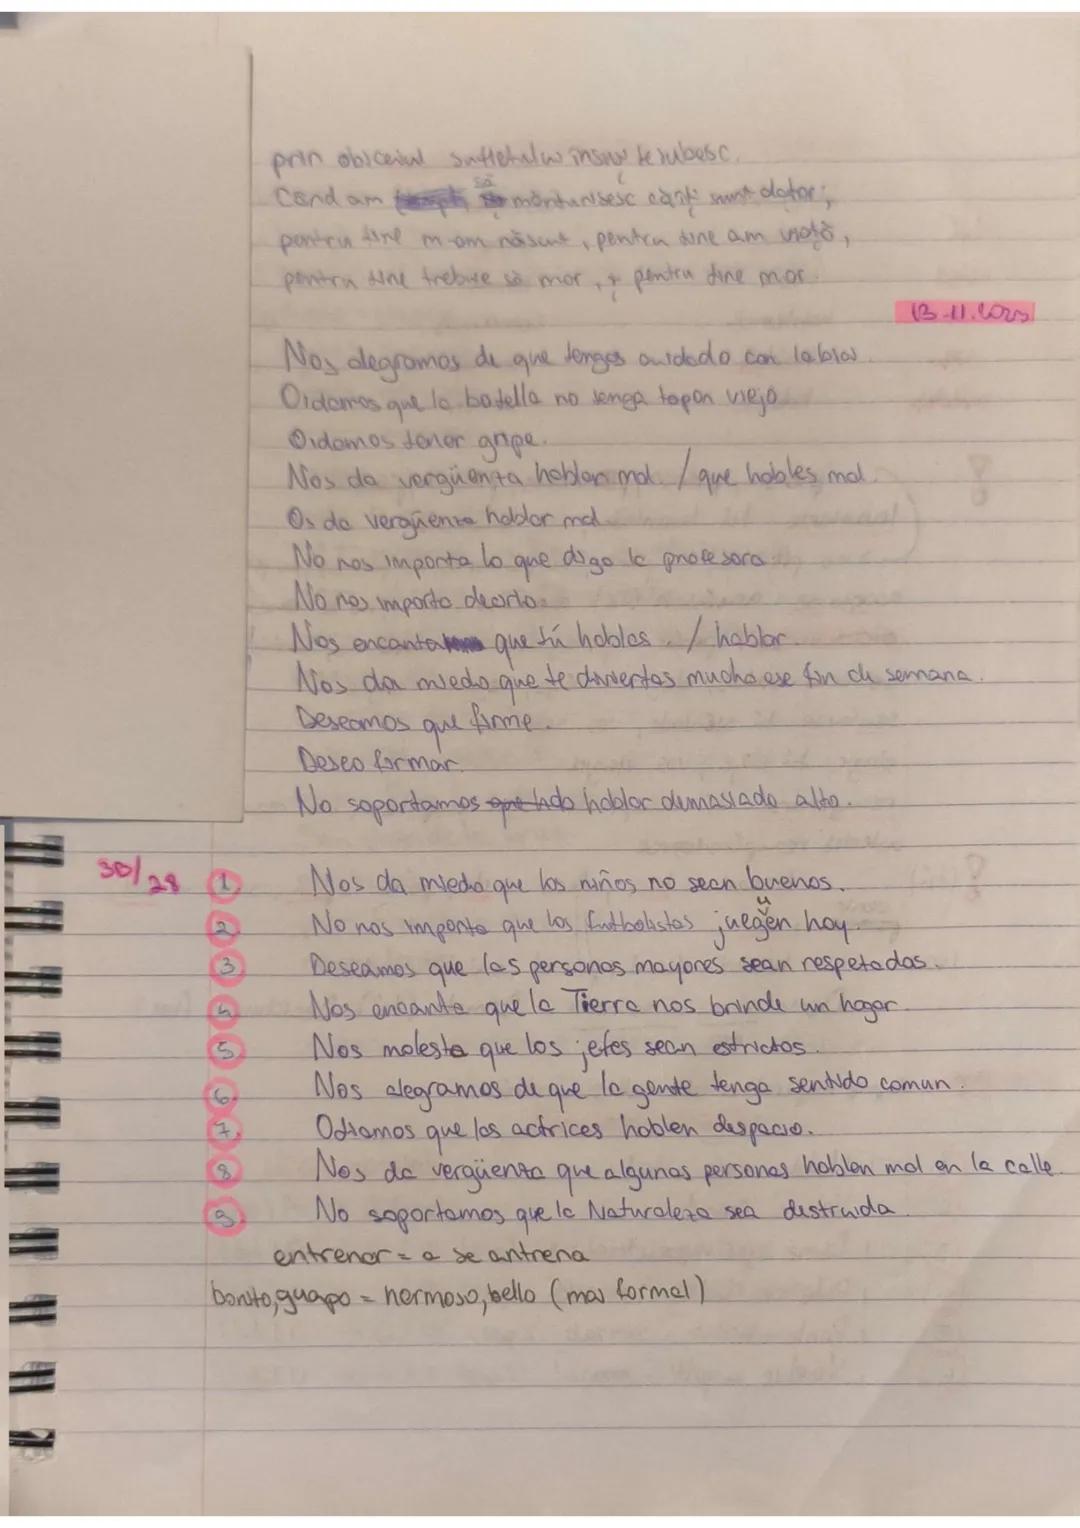 prin obiceiul sufletului însuși te iubesc.
Cand am să mărturisesc câți sunt dator;
pentru tine m-am născut, pentru tine am viață,
pentru tine trebuie să mor, și pentru tine mor.
13.11.2023
Nos alegramos de que tengas cuidado con
Oidamos que la botella no tenga tapon viejo
Oidamos tener gripe.
Nos da vergüenza hablar mal. / que hables mal.
Os da vergüenza hablar mal
No nos importa lo que diga la profesora.
No nos importa decirlo.
Nos encanta que tú hables. / hablar.
Nos da miedo que te diviertas mucho ese fin de semana.
Deseamos que firme.
Deseo formar.
No soportamos hablar demasiado alto.
30/28 1 Nos da miedo que los niños no sean buenos.
2 No nos importa que los futbolistas juegen hoy.
u
3 Deseamos que las personas mayores sean respetadas.
4 Nos encanta que la Tierra nos brinde un hogar.
5 Nos molesta que los jefes sean estrictos.
6 Nos alegramos de que la gente tenga sentido comun.
7 Odiamos que las actrices hablen despacio.
8 Nos da vergüenza que algunas personas hablen mal en la calle.
9 No soportamos que la Naturaleza sea destruida.
entrenar = a se antrena
bonito, guapo = hermoso, bello (mas formal)